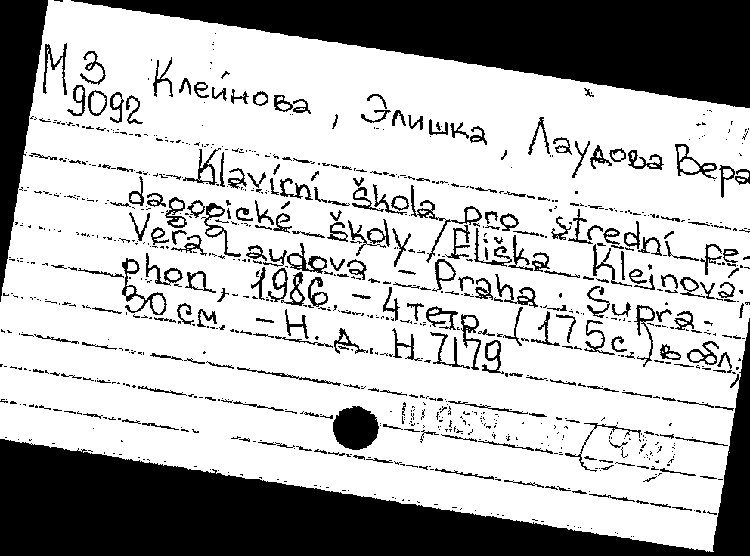 М 3
9092
Клейнова, Элишка, Лаудова Вера
Klavírní škola pro střední pe-
dagogické školy / Eliška Kleinová,
Veřa Laudová. - Praha: Supra-
phon, 1986. - 4 тетр. (175 с.) в обл;
30 см. - Н. д. H 7179